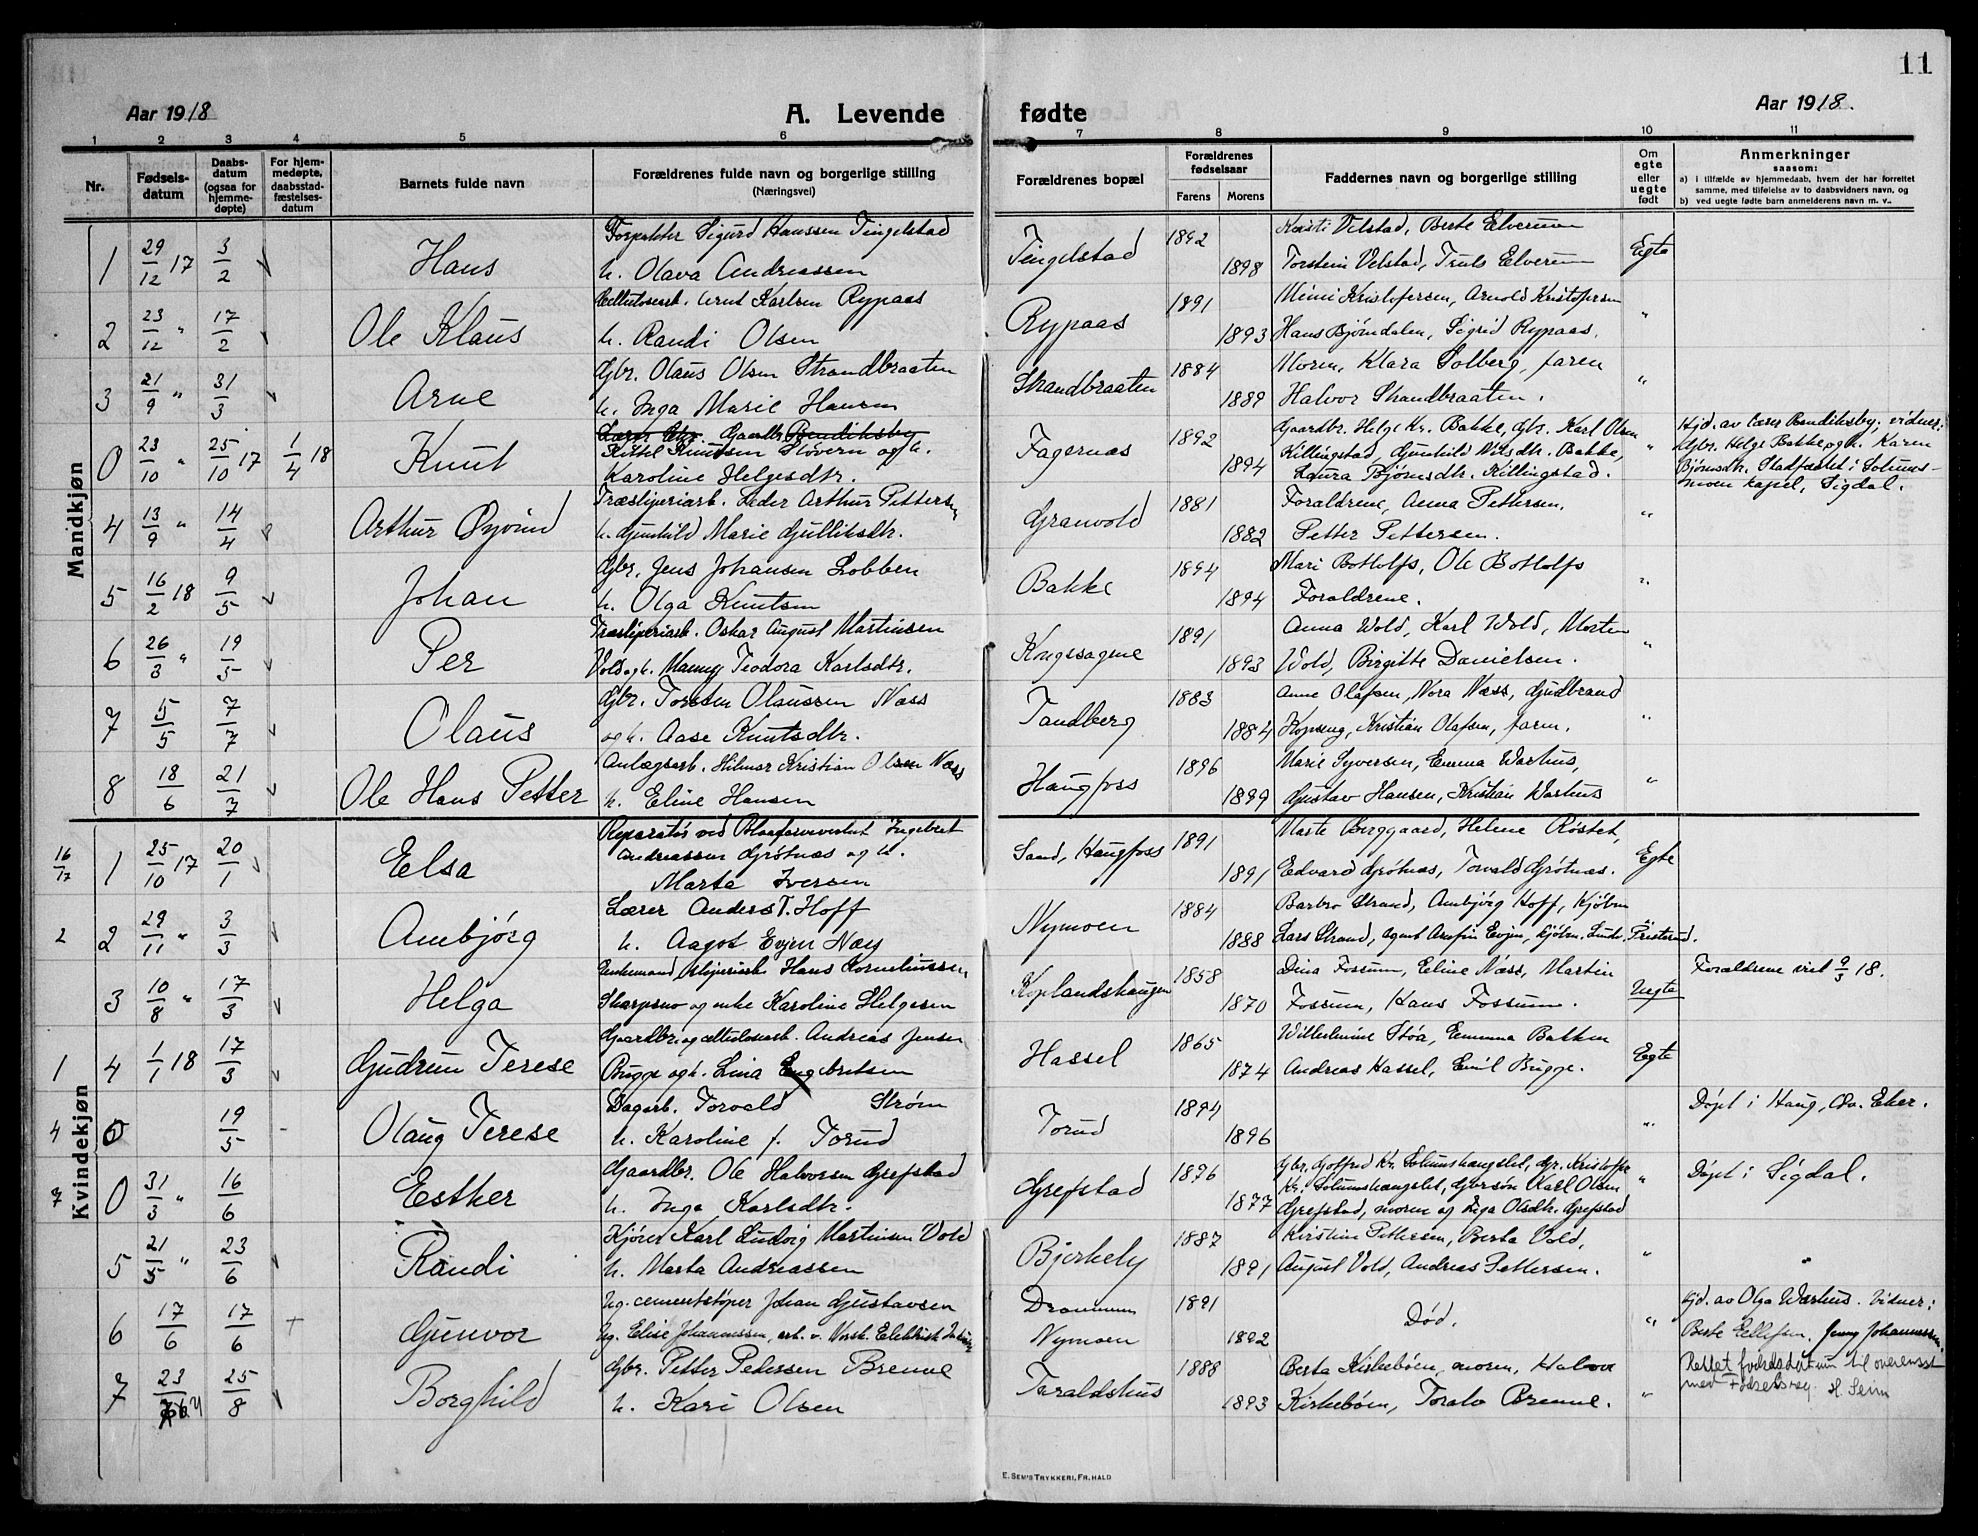 11
Aar 1918
A. Levende fødte
Aar 1918.
1 2 3 4 5 6 7 8 9 10 11
Nr.
Fødselsdatum
Daabsdatum (ogsaa for hjemmedøpte)
For hjemmedøpte, daabsstadfæstelsesdatum
Barnets fulde navn
Forældrenes fulde navn og borgerlige stilling
(Næringsvei)
Forældrenes bopæl
Forældrenes fødselsaar
Farens Morens
Faddernes navn og borgerlige stilling
Om egte eller uegte født
Anmerkninger
saasom:
a) i tilfælde av hjemmedaab, hvem der har forrettet samme, med tilføielse av to daabsvidners navn, og
b) ved uegte fødte barn anmelderens navn m. v.
Mandkjøn
1 29/12 17 3/2 Hans
Sigurd Hanssen Tingelstad
h. Olava Andreassen
Tingelstad 1892 1898
Kristi Velstad, Berte Elverum
Torstein Velstad, Truls Elverum
Egte
2 23/12 " 17/2 Ole Klaus
Cellulosearb. Arnt Karlsen Rypaas
h. Randi Olsen
Rypaas 1891 1893
Mimi Kristofersen, Arnold Kristofersen
Hans Bjørndalen, Sigrid Rypaas.
"
3 21/9 " 31/3 Arne
Gbr. Olaus Olsen Strandbraaten
h. Inga Marie Hansen
Strandbraaten 1884 1889
Moren, Klara Solberg, faren
Halvor Strandbraaten.
"
0 23/10 " 25/10 17 1/4 18 Knut
Gaardbr. Bendiksby
Kittel Knutsen Støvern og h.
Karoline Helgesdtr.
Fagernas 1892 1894
Gaardbr. Helge Kr. Bakke, Gbr. Karl Olsen
Killingstad, Gunhild Nilsdtr. Bakke,
Laura Bjørnsdtr. Killingstad.
"
Hjd. av Lærer Bendiksby; vidner:
Gbr. Helge Bakke og h. Karen
Bjørnsdtr. Stadfæstet i Solumsmoen kapel, Sigdal.
4 13/9 " 14/4 Arthur Øyvind
Træsliperiarb. Peder Arthur Pettersen
h. Gunhild Marie Gulliksdtr.
Granvold 1881 1882
Forældrene, Anna Pettersen,
Petter Pettersen.
"
5 16/2 18 9/5 Johan
Gbr. Jens Johansen Lobben
h. Olga Knutsen
Bakke 1894 1894
Mari Botholfs, Ole Botholfs
Forældrene.
"
6 26/3 " 19/5 Per
Træsliperiarb. Oskar August Martinsen
Vold og h. Manny Teodora Karlsdtr.
Kongssagene 1891 1893
Anna Wold, Karl Wold, Morten
Wold, Birgitte Danielsen.
"
7 5/5 7/7 Olaus
Gbr. Torsten Olaussen Næss
og h. Aase Knutsdtr.
Tandberg 1883 1884
Anne Olafsen, Nora Næss, Gudbrand
Kopseng, Kristian Olafsen, faren.
"
8 18/6 21/7 Ole Hans Petter
Anlægsarb. Hilmar Kristian Olsen Næss
h. Eline Hansen
Haugfoss 1896 1899
Marie Syversen, Emma Warhus,
Gustav Hansen, Kristian Warhus
"
Kvindekjøn
16/17 1 25/10 17 20/1 Elsa
Reparatør ved Blaafarveverket Ingebret
Andreassen Grøtnæs og h.
Marta Iversen
Sand, Haugfoss 1891 1891
Marte Berggaard, Helene Røstet,
Edvard Grøtnæs, Torvald Grøtnæs.
Egte
2 2 29/11 " 3/3 Ambjørg
Lærer Anders T. Hoff
h. Aagot Evjen Næss
Nymoen 1884 1888
Barbro Strand, Ambjørg Hoff, Kjøbm
Lars Strand, agent Arnfin Evjen, kjøbm. Linde, Tristerud.
3 10/8 " 17/3 Helga
Enkemand, sliperiarb. Hans Korneliussen
Skarpsno og enke Karoline Helgesen
Koplandshaugen 1858 1870
Dina Fossum, Eline Næss, Martin
Fossum, Hans Fossum.
Uegte
Forældrene viet 9/3 18.
1 4 1/1 18 17/3 Gudrun Terese
Gaardbr. og cellulosearb. Andreas Jensen
Brugge og h. Lina Engebretsen
Hassel 1865 1874
Wilhelmine Støa, Emma Bakken
Andreas Hassel, Emil Brugge.
Egte
4 0 19/5 - Olaug Terese
Dagarb. Torvald Strøm
h. Karoline f. Torud
Torud 1894 1896
"
Døpt i Haug, Øv. Eker.
7 0 31/3 " 16/6 Esther
Gaardbr. Ole Halvorsen Grefstad
h. Inga Karlsdtr.
Grefstad 1876 1877
Gbr. Gotfred Kr. Solumshaugslet, Gbr. Kristoffer
Kr. Solumshaugslet, Gbrsøn Karl Olsen
Grefstad, moren og Inga Olsdtr. Grefstad
"
Døpt i Sigdal.
5 21/5 " 23/6 Randi
Kjører Karl Ludvig Martinsen Vold
h. Marta Andreassen
Bjerkely 1887 1891
Kirstine Pettersen, Berta Vold,
August Vold, Andreas Pettersen.
" "
6 17/6 17/6 + Gunvor
Ug. cementstøper Johan Gustavsen
Ug. Elise Johannessen, arb. v. Norsk Elektrisk
Drammen
Nymoen 1891 1892
Død.
" "
Hjd. av Olga Warhus. Vidner:
Berte Ellefsen, Jenny Johannessen.
7 23/ 25/8 Borghild
Gbr. Petter Pedersen Brenne
h. Kari Olsen
Taraldshus 1888 1893
Berta Kirkebøen, moren, Halvor
Kirkebøen, Toralv Brenne.
"
Rettet fødselsdatum til overensst
med Fødselsreg. H. Seim
E. SEM'S TRYKKERI, FR. HALD